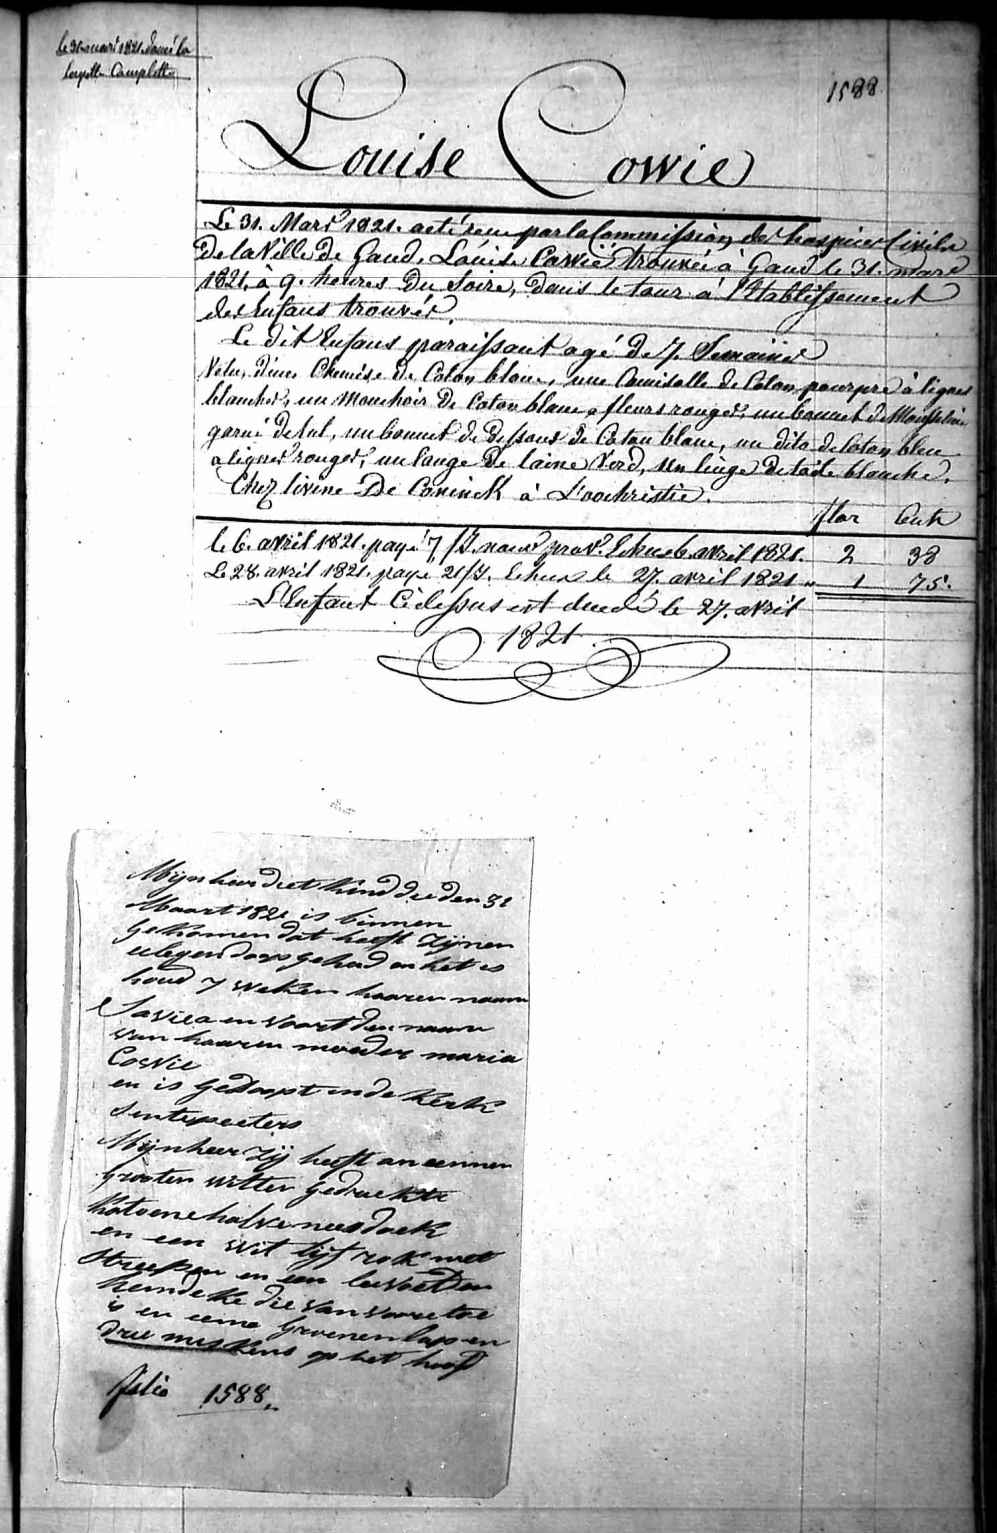 le 31 mars 1821 donné la
layette Complette
1588
Louise Cowie
Le 31. Mars 1821. acté reçu par la Commission des hospices Civils
De la Ville De Gand, Louise Cowie trouvée à Gand le 31. mars
1821, à 9. heures Du Soire, Dans le tour à l'Etablissement
des Enfans trouvés.
Le dit Enfans paraissant agé De 7. Semaines
Vetu, d'une Chemise de Coton blanc, une Camisolle de Coton pourpre à lignes
blanches, un Mouchoir De Coton blanc a fleurs rouges, un bonnet de Mousseline
garni de tul, un bonnet de Dessous de Coton blanc, un dito de Coton bleu
a lignes rouges, un lange De laine Verd, un linge De toile blanche.
Chez livine De Coninck à Loochristie.
flor Cents
le 6. avril 1821. payé 7 prov. Echu 6. avril 1821. 2 38
Le 28. avril 1821. payé 21/J. Echu le 27. avril 1821 1 75.
L'Enfant Cidessus est ducdé le 27. avril
1821.
Mijn heer dit Kind die den 31
Maart 1821 is binnen
gekomen dat heeft Zijnen
gehad en het is
houd 7 weken haaren naam
Savica en voort den naam
van haaren moeder maria
Cowie
en is gedoopt in de Kerk
Sintepeeters
Mijnheer Zij heeft an eennen
grooten witten gedruckte
Katoene halve neusdoek
en een wit lijf rok met
Streepen en een
hemdeke die van vore toe
is en eene groenen lap en
drie muskens op het hooft
folio 1588